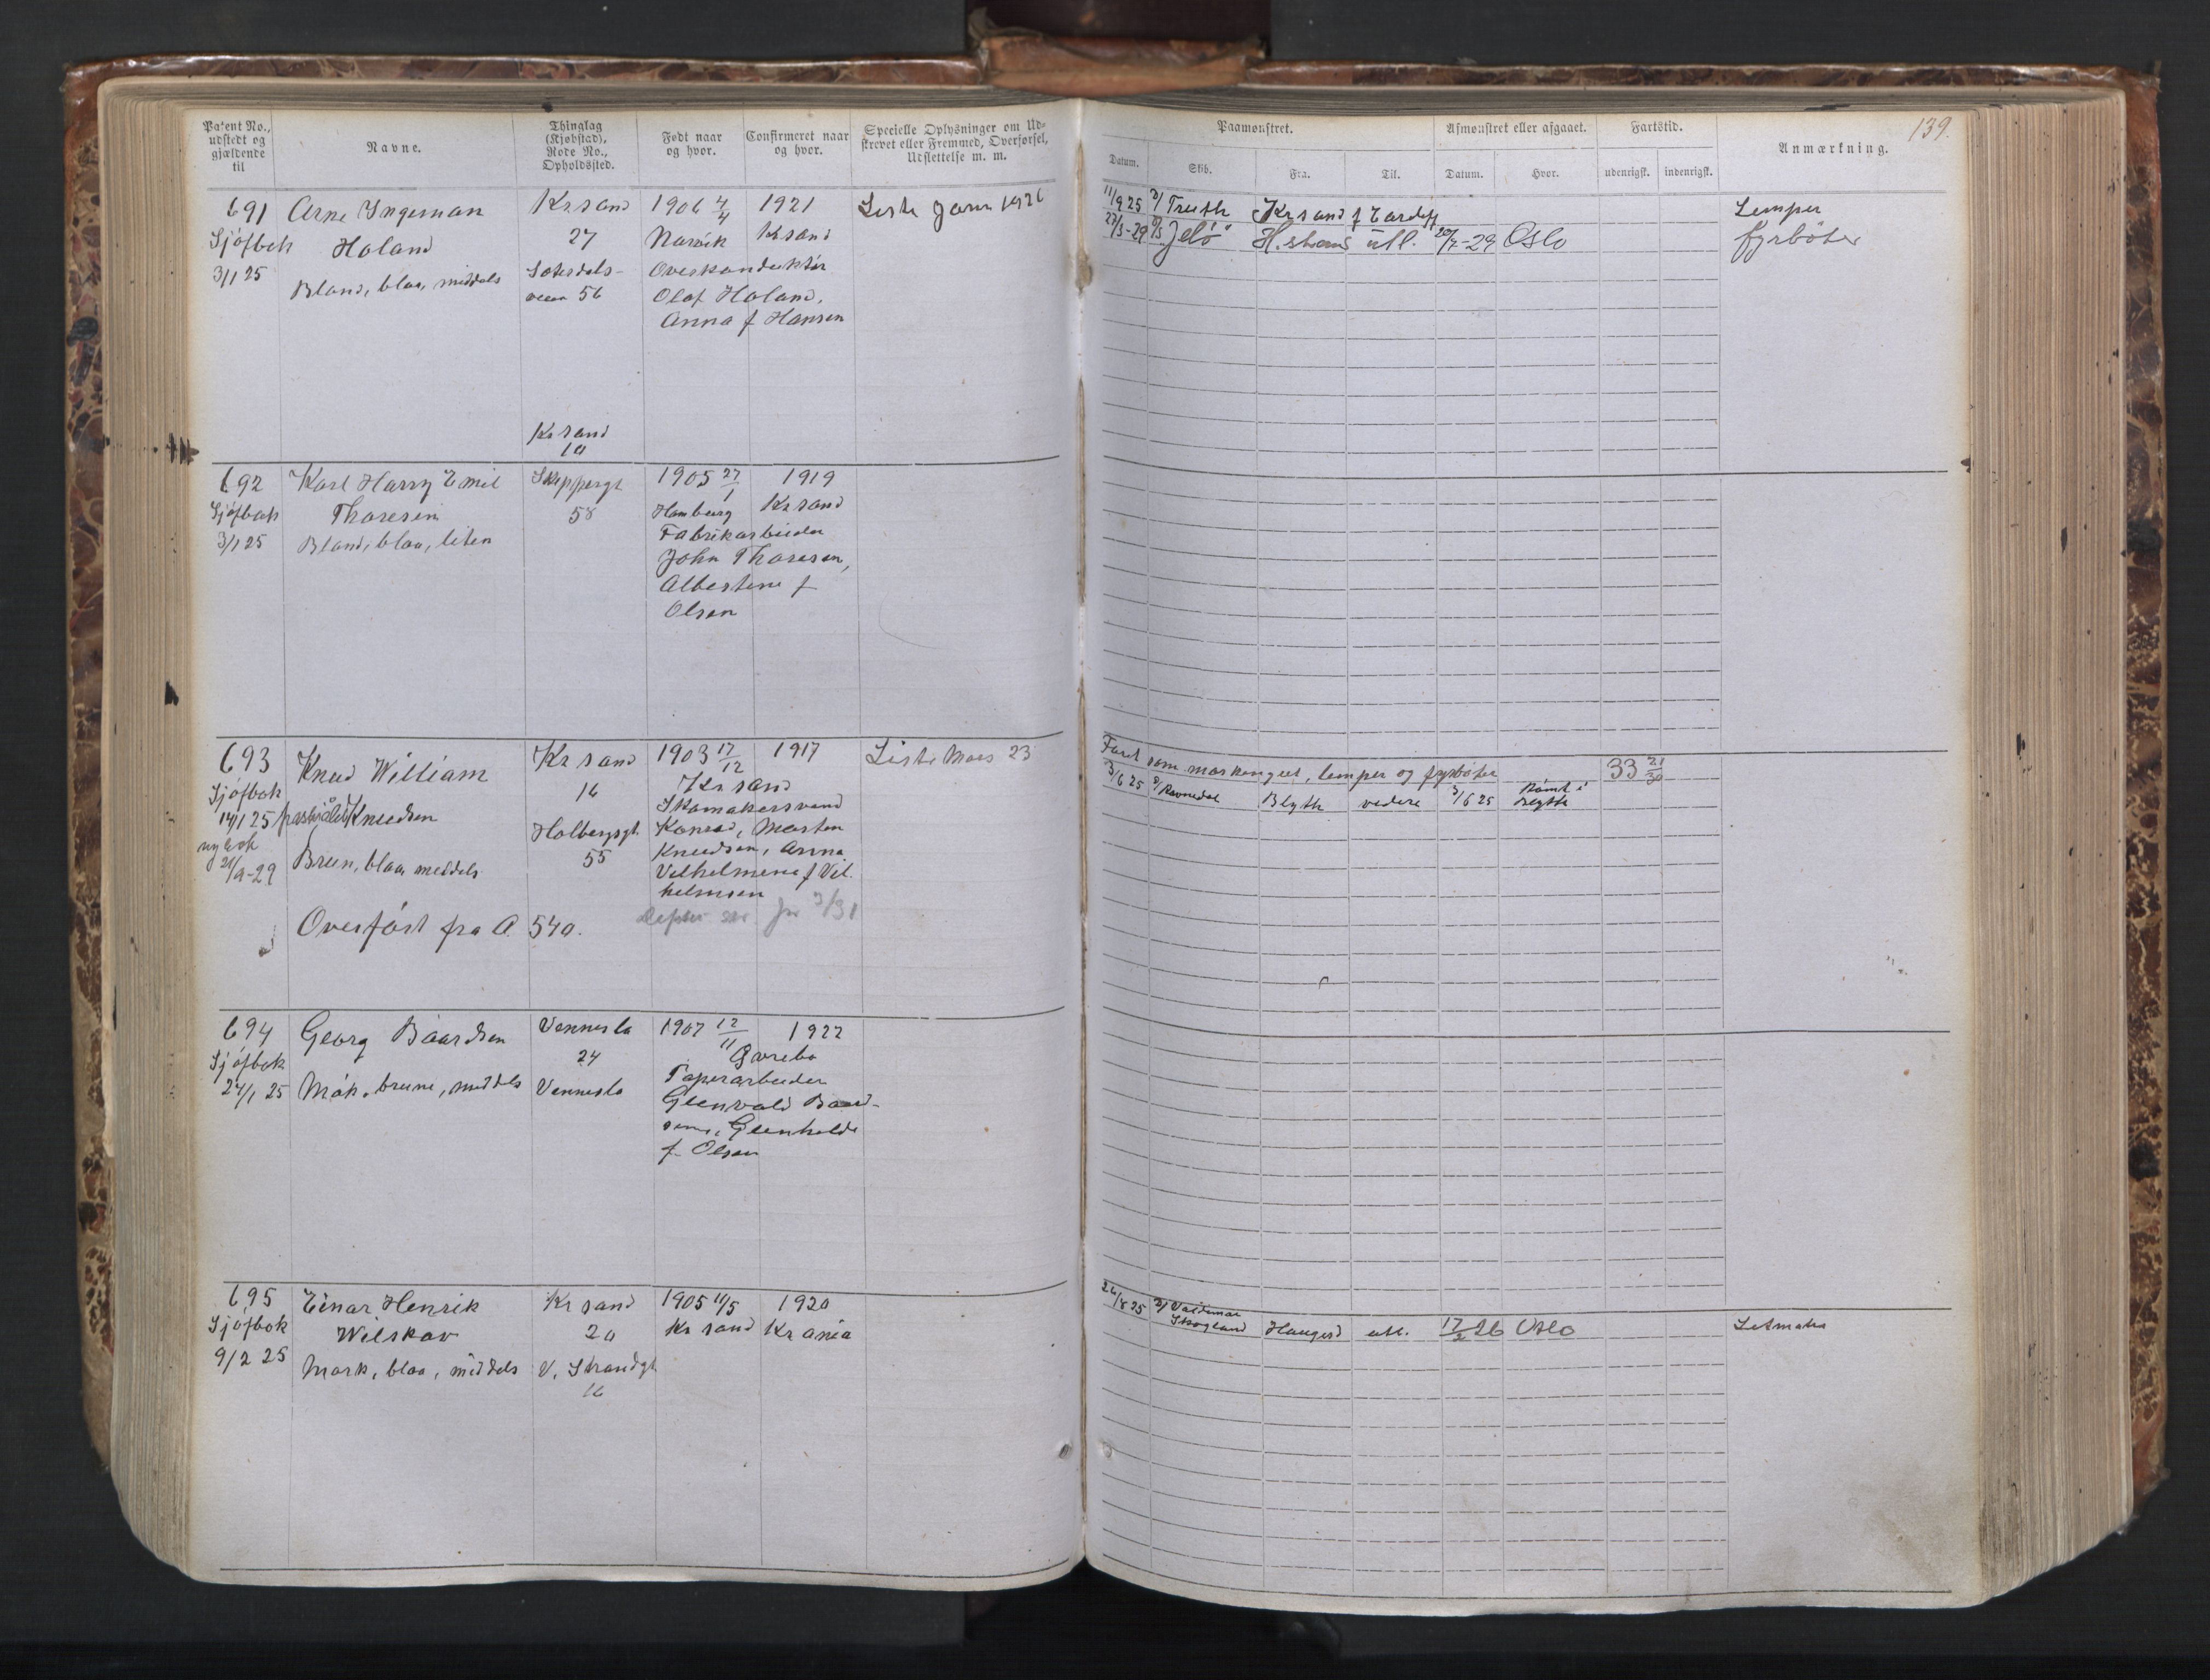 Patent No., udstedt og gjældende til
Navne.
Thinglag (Kjøbstad), Rode No., Opholdssted.
Født naar og hvor.
Confirmeret naar og hvor.
Specielle Oplysninger om Udskrevet eller Fremmed, Overførsel, Udslettelse m. m.
Paamønstret.
Afmønstret eller afgaaet.
Fartstid.
Anmærkning.
139.
Datum.
Skib.
Fra.
Til.
Datum.
Hvor.
udenrigsk.
indenrigsk.
691
Sjøfbok
3/1 25
Arne Ingeman
Holand
Blond, blaa, middels
Krsand
27
Setesdals-
veien 56
1906 4/4
Narvik
1921
Krsand
Overkonduktør
Olaf Holand,
Anna f Hansen
Liste Jan 1926
11/9 25 D/ Truth Krsand f Cardiff
Lemper
27/5-29 D/S "Jelö" H.strand utl. 20/7-29 Oslo
fyrbøter
Krsand
10
692
Sjøfbok
3/1 25
Karl Harry Emil
Thoresen
Blond, blaa, liten
Skippergt
58
1905 27/1
Hamburg
1919
Krsand
Fabrikarbeider
John Thoresen,
Albertine f
Olsen
693
Sjøfbok
14/1 25
ny bok
21/9-29
Knud William
Knudsen
Brun, blaa, middels
Overført fra A 540.
Krsand
16
Holbergsgt
55
1903 17/12
1917
Krsand
Skomakersvend
Konrad, Morten
Knudsen, Anna
Vilhelmine f Vil-
helmsen
Liste Mars 23
Faret som maskingut, lemper og fyrbøter
33 21/30
3/6 25 D/ Ravnedal Blyth videre 3/6 25 Rømt i Blyth
694
Sjøfbok
24/1 25
Georg Baardsen
Mørk, brune, middels
Vennesla
24
Vennesla
1907 12/11
1922
Øvrebø
Papirarbeider
Gunvald Baard-
sen, Gunhilde
f. Olsen
695
Sjøfbok
9/2 25
Einar Henrik
Wilskov
Mørk, blaa, middels
Krsand
20
V. Strandgt
16
1905 11/5
Krsand
1920
Krania
26/8 25 D/ Valdemar Skogland Haugesd utl. 17/2 26 Oslo
Letmatros